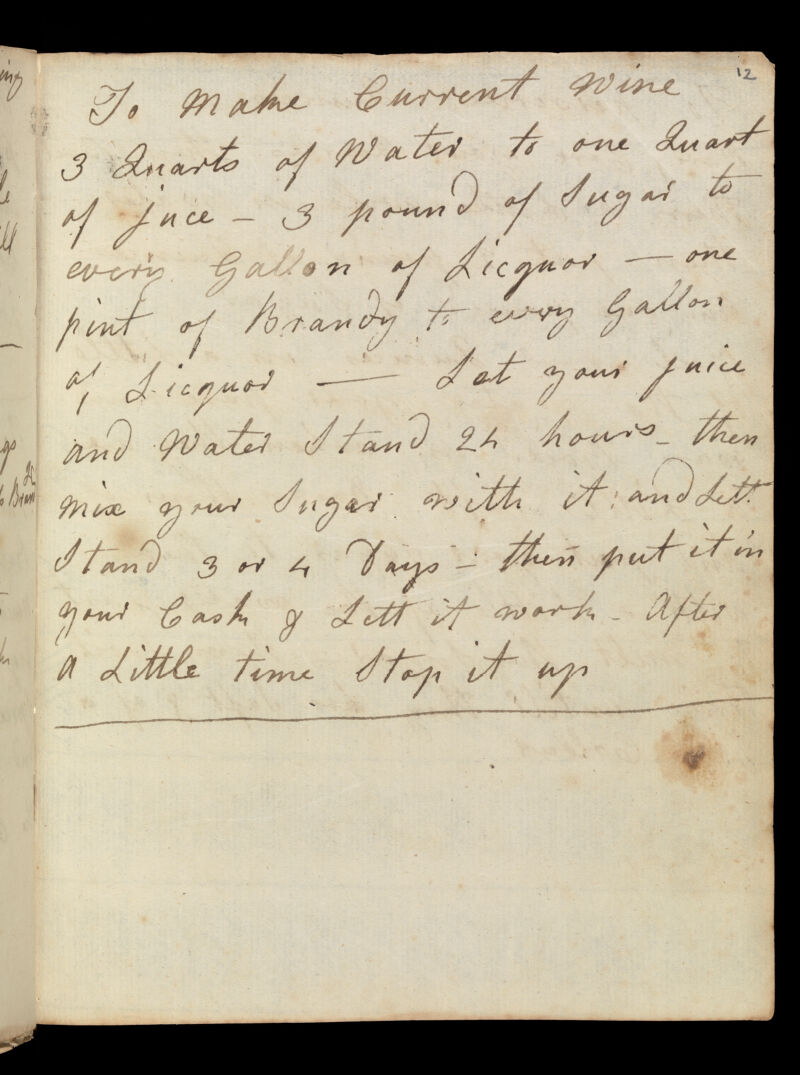 12
To Make Current Wine
3 Quarts of Water to one Quart
of juce - 3 pound of Sugar to
every Gallon of Licquor — one
pint of Brandy to every Gallon
of Licquor — Let your juice
and Water Stand 24 hours - then
mix your Sugar with it: and Lett
Stand 3 or 4 Days - then put it in
your Cask & Lett it work - After
a Little time Stop it up